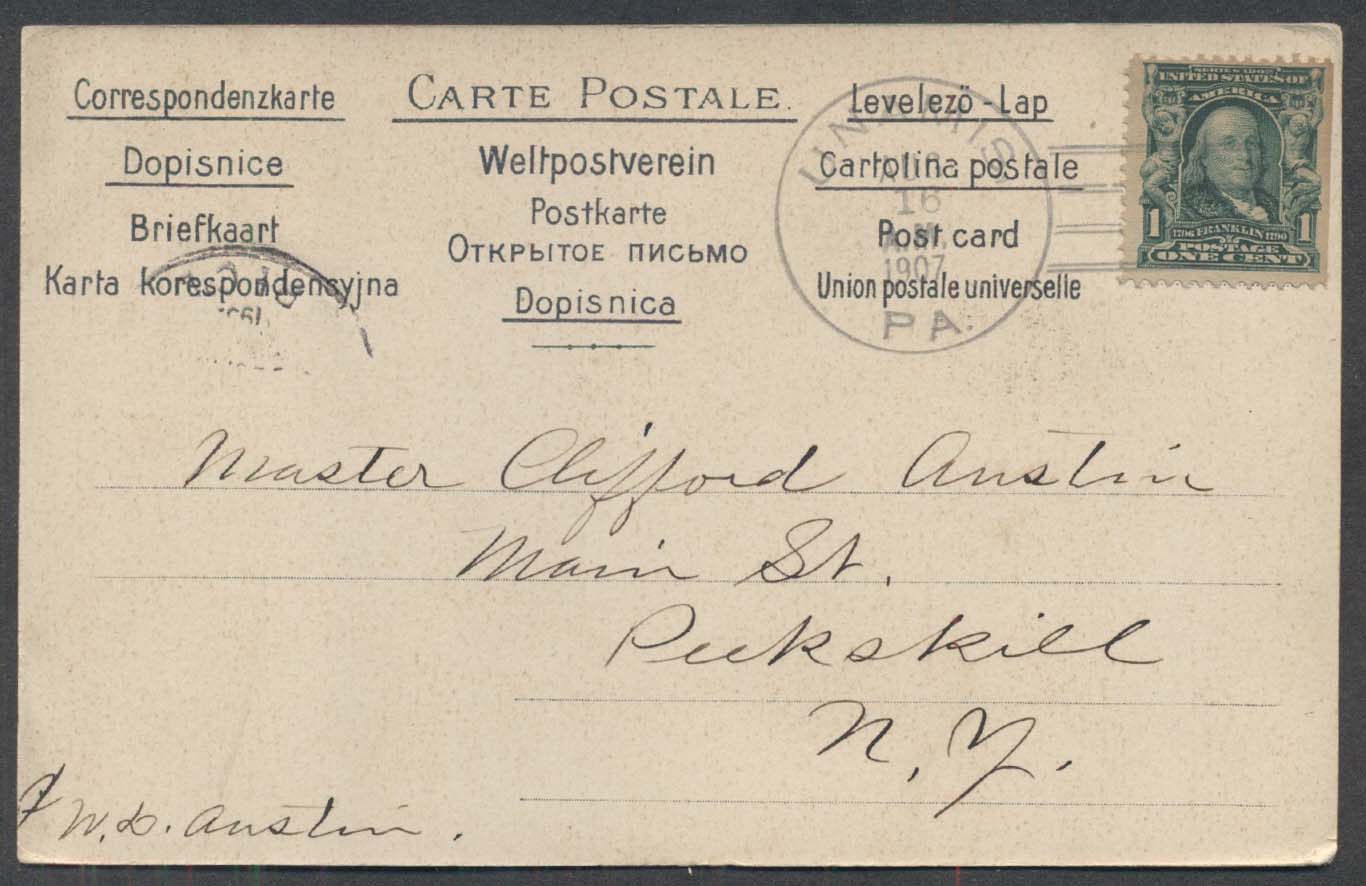 Correspondenzkarte
Dopisnice
Briefkaart
Karta korespondencyjna
CARTE POSTALE.
Weltpostverein
Postkarte
ОТКРЫТОЕ ПИСЬМО
Dopisnica
Levelező-Lap
Cartolina postale
Post card
Union postale universelle
16
1907
PA.
SERIES 1902
UNITED STATES OF
AMERICA
1 1
1706 FRANKLIN 1790
POSTAGE
ONE CENT
Master Clifford Austin
Main St.
Peekskill
N. Y.
W. D. Austin.